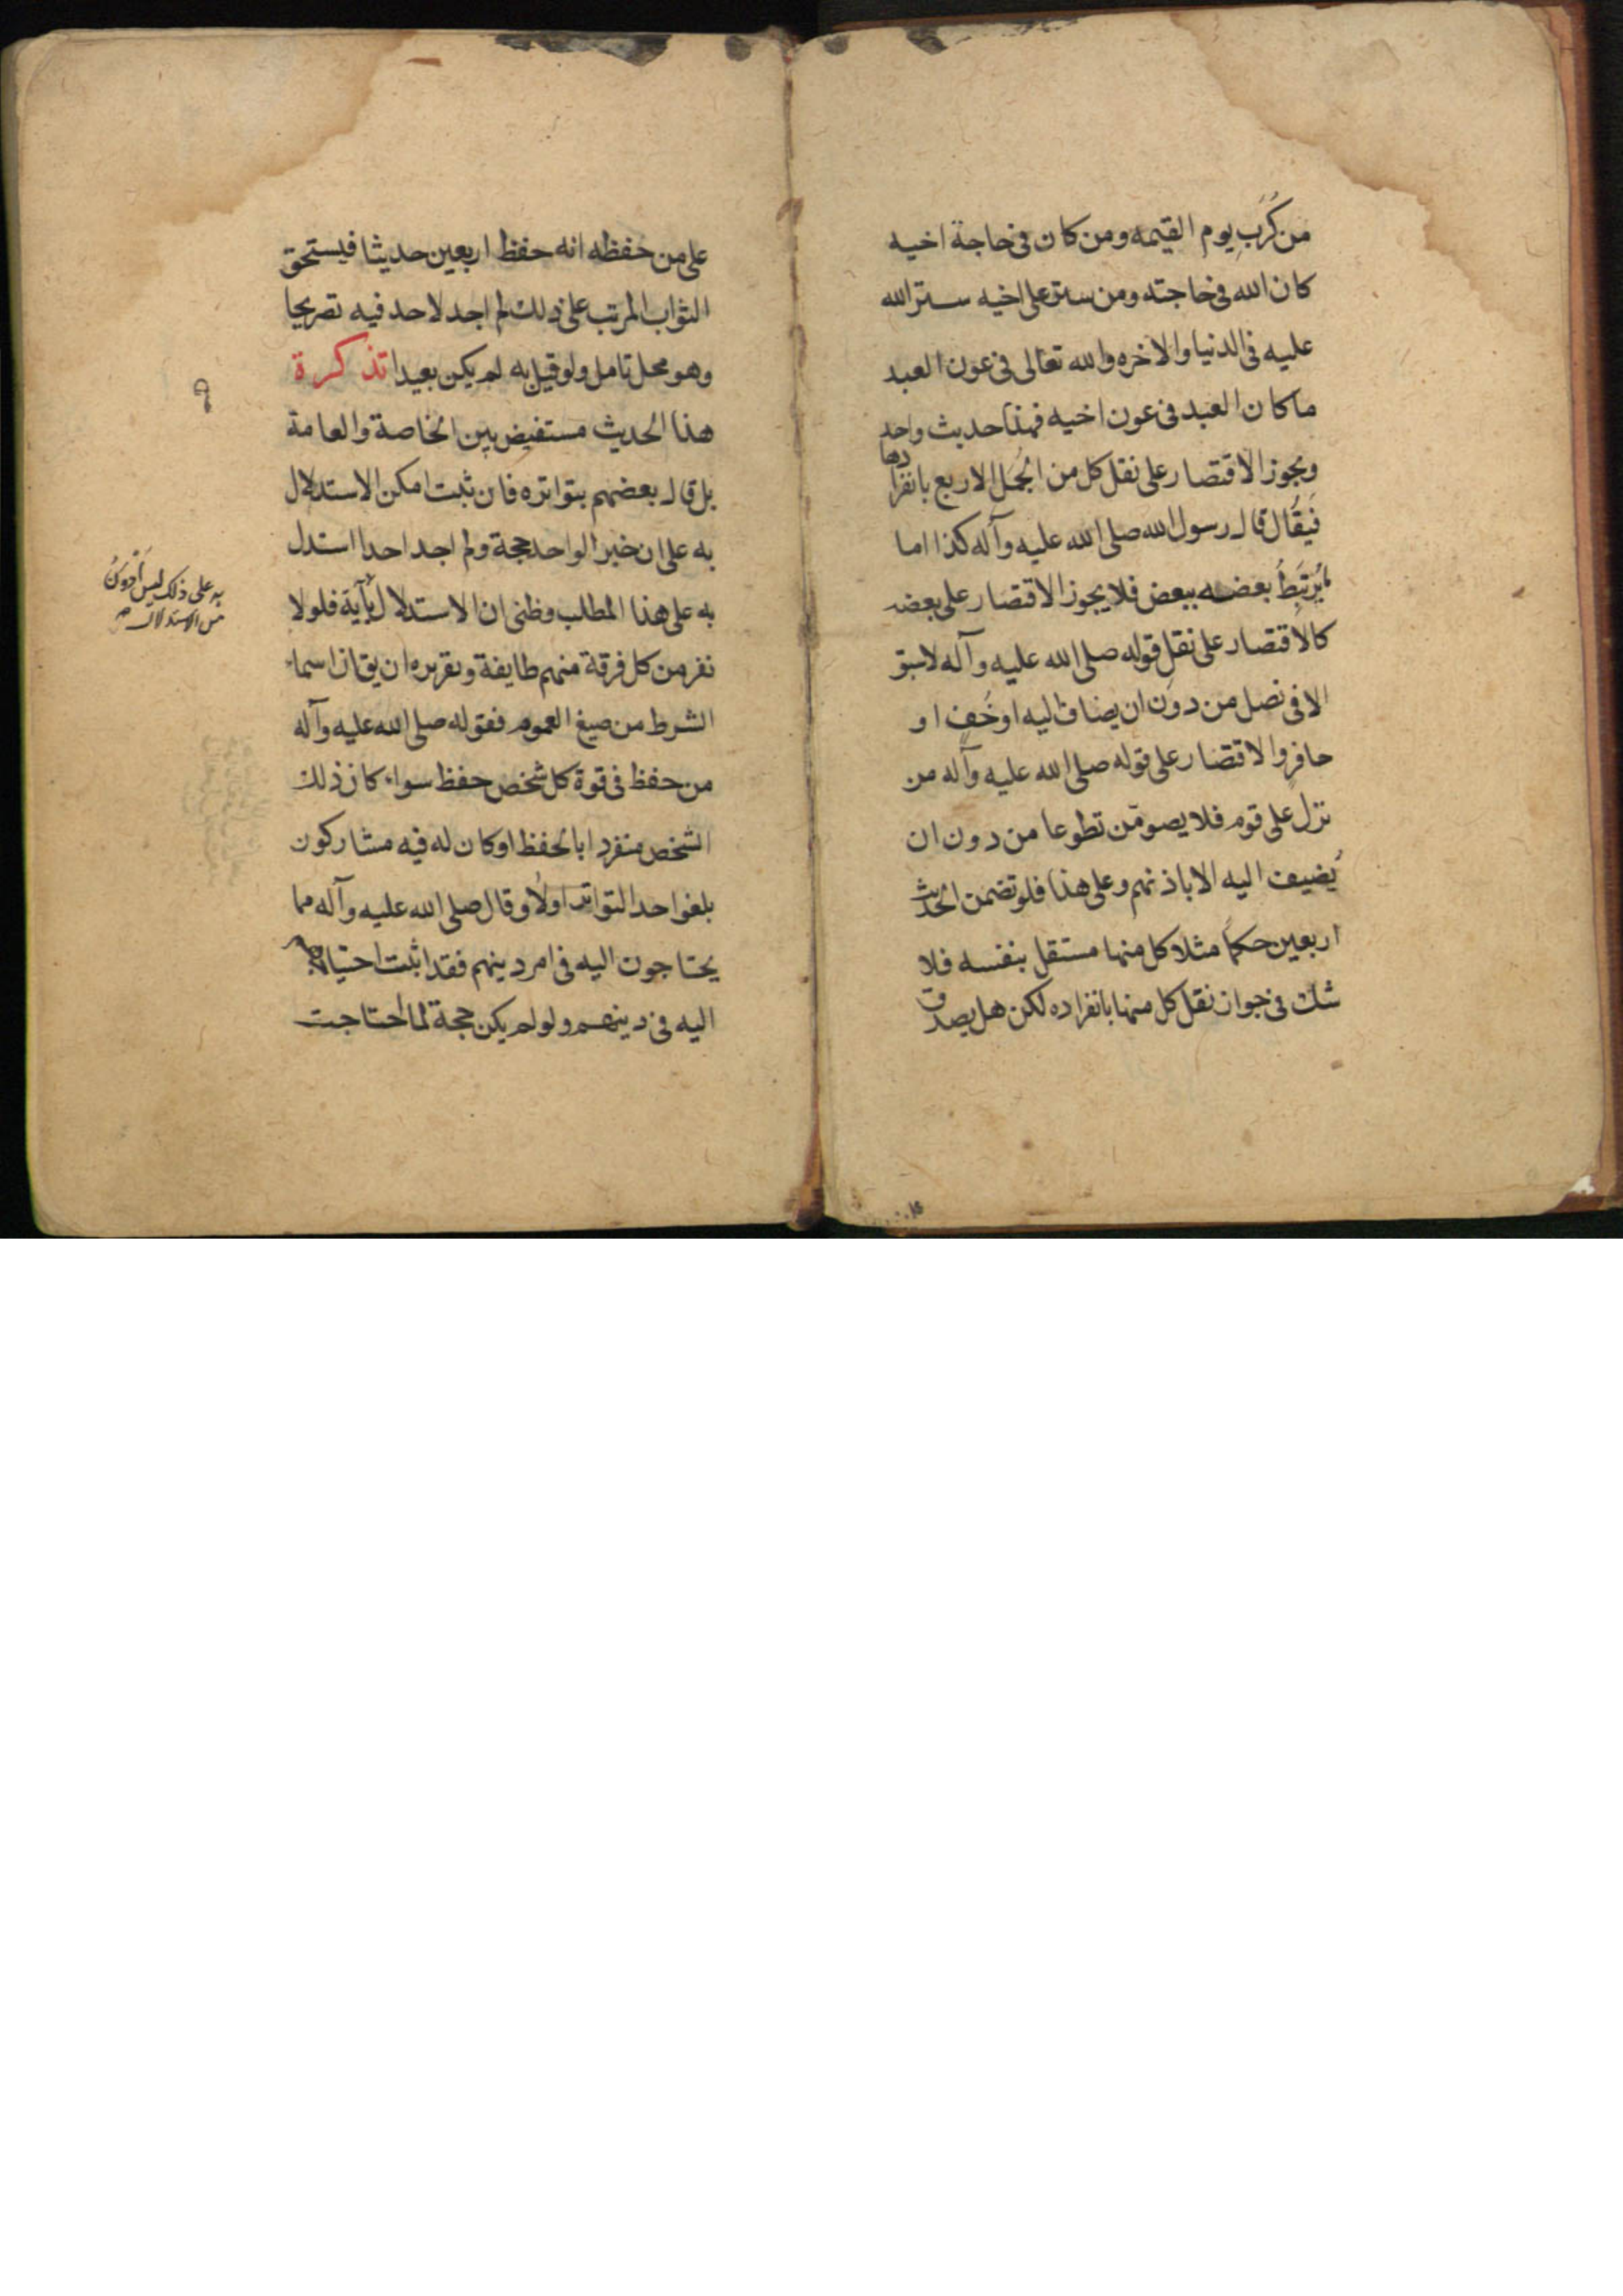 من كُرَبِ يوم القيمه ومن كان فى حاجة اخيه
كان الله فى حاجته ومن ستر على اخيه ستر الله
عليه فى الدنيا والاخره والله تعالى فى عون العبد
ما كان العبد فى عون اخيه فهذا حديث واحد
ويجوز الاقتصار على نقل كل من الجُمَل الاربع بانفرادها
فيُقال قال رسول الله صلى الله عليه وآله كذا اما
ما يُرتَبَطُ بعضه ببعض فلا يجوز الاقتصار على بعضه
كالاقتصار على نقل قوله صلى الله عليه وآله لا سبق
الا فى نصل من دون ان يضاف اليه او خُف او
حافر والاقتصار على قوله صلى الله عليه وآله من
نزل على قوم فلا يصومّن تطوعا من دون ان
يُضيف اليه الا باذنهم وعلى هذا فلو تضمن الحديث
اربعين حكمًا مثلا كل منها مستقل بنفسه فلا
شك فى جواز نقل كل منها بانفراده لكن هل يصدق
على من حفظه انه حفظ اربعين حديثا فيستحق
الثواب المرتب على ذلك لم اجد لاحد فيه تصريحا
وهو محل تامل ولو قيل به لم يكن بعيدا تذكرة
هذا الحديث مستفيض بين الخاصة والعامة
بل قال بعضهم بتواتره فان ثبت امكن الاستدلال
به على ان خبر الواحد حجة ولم اجد احدا استدل
به على هذا المطلب وظنى ان الاستدلال بآية فلولا
نفر من كل فرقة منهم طايفة وتقريره ان يقال اسماء
الشرط من صيغ العموم فقوله صلى الله عليه وآله
من حفظ فى قوة كل شخص حفظ سواء كان ذلك
الشخص منفردا بالحفظ او كان له فيه مشاركون
بلغوا حد التواتر اولا وقال صلى الله عليه وآله مما
يحتاجون اليه فى امر دينهم فقد اثبت احتياجهم
اليه فى دينهم ولو لم يكن حجة لما احتاجت
٩
به على ذلك ليس أدْوَنُ
من الاستدلال صح